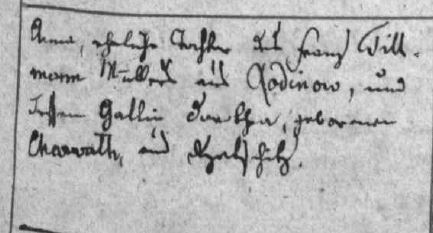 Anna, eheliche Tochter des Franz Titt-
mann Müllers aus Rodinow, und
dessen Gattin Dorothea, geborenen
Charwath, aus